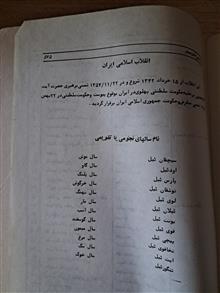 ۵۷۵
انقلاب اسلامی ایران
انقلاب از ۱۵ خرداد ۱۳۴۲ شروع و در ۱۳۵۷/۱۱/۲۲ شمسی برهبری حضرت آیت
حکومت سلطنتی پهلوی در ایران بوقوع پیوست و حکومت سلطنتی در ۲۲ بهمن
و حکومت جمهوری اسلامی ایران برقرار گردید.
نام سالهای نجومی یا تقویمی
سیچقان ئیل سال موش
اودئیل سال گاو
بارس ئیل سال پلنگ
توشقان ئیل سال خرگوش
لوی ئیل سال نهنگ
ئیلان ئیل سال مار
یونت ئیل سال اسب
قوی ئیل سال گوسفند
پیچی ئیل سال میمون
تخاقوی ئیل سال مرغ
ایت ئیل سال سگ
تنگوزئیل سال خوک